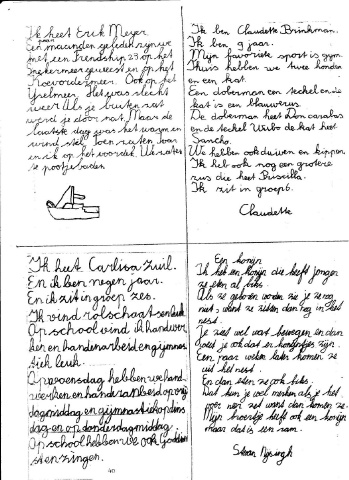 Ik heet Erik Meyer
een
paar
maanden geleden zijn we
met een Friendship 23 op het
Snekermeer geweest en op het
Koevordermeer. Ook op het
Yselmeer. Het was slecht
weer Als je buiten zat
werd je door nat. Maar de
laatste dag was het warm en
wind stil. Toen zaten Toon
en ik op het voordek. We zaten
te pootje baden
Ik ben Claudette Brinkman.
Ik ben 9 jaar.
Mijn favoriete sport is gym.
Thuis hebben we twee honden
en een kat.
Een doberman een teckel en die
kat is een blauwe rus.
De doberman heet Don carabas
en de teckel Wibo de kat heet
Sascho.
We hebben ook duiven en kippen.
Ik heb ook nog een grotere
zus die heet Priscilla.
Ik zit in groep 6.
Claudette
Ik heet Carlisa Zuil.
En ik ben negen jaar.
En ik zit in groep zes.
Ik vind rolschaatsen leuk
Op school vind ik handwer
ken en handenarbeid en gijmnas
tiek leuk.
Op woensdag hebben we hand
werken en handenarbeid op vrij
dagmiddag en gijmnastiek op dins
dag en op donderdagmiddag.
Op school hebben we ook Godsdien
st en zingen.
40
Een konijn
Ik heb een konijn die heeft jongen
ze eten al brks.
Als ze geboren worden zie je ze nog
niet, want ze zitten dan nog in het
nest.
Je ziet wel wat bewegen en dan
weet je ook dat er konijntjes zijn.
Een paar weken later komen ze
uit het nest.
En dan eten ze ook brks.
Dat kun je wel merken als je het
voer neer zet want dan komen ze.
Mijn broertje heeft ook een konijn
maar dat is een ram.